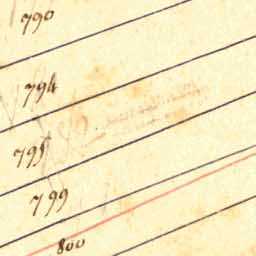 790
794
795
799
800